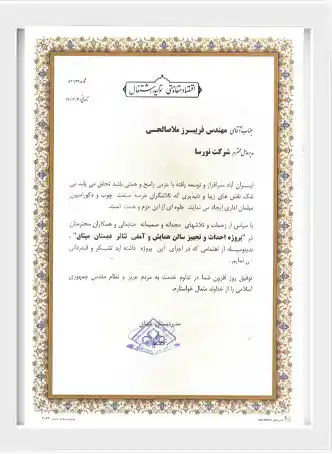 اقتصاد مقاومتی تولید، اشتغال
جناب آقای مهندس فریبرز ملاصالحی
مدیرعامل محترم شرکت نورسا
ایـــران آباد سرافراز و توسعه یافته با عزمی راسخ و همتی بلند تحقق می یابد بی
شک نقش های زیبا و دلپذیری که تلاشگران عرصه صنعت چوب و دکوراسیون
مبلمان اداری ایجاد می نمایند جلوه ای از این عزم و همت است.
با سپاس از زحمات و تلاشهای مجدانه و صمیمانه جنابعالی و همکاران محترمتان
در "پروژه احداث و تجهیز سالن همایش و آمفی تئاتر دبستان میثاق"،
بدینوسیله از اهتمامی که در اجرای این پروژه داشته اید تشکر و قدردانی
می نمایم.
توفیق روز افزون شما در تداوم خدمت به مردم عزیز و نظام مقدس جمهوری
اسلامی را از خداوند متعال خواستارم.
مدیر دبستان میثاق